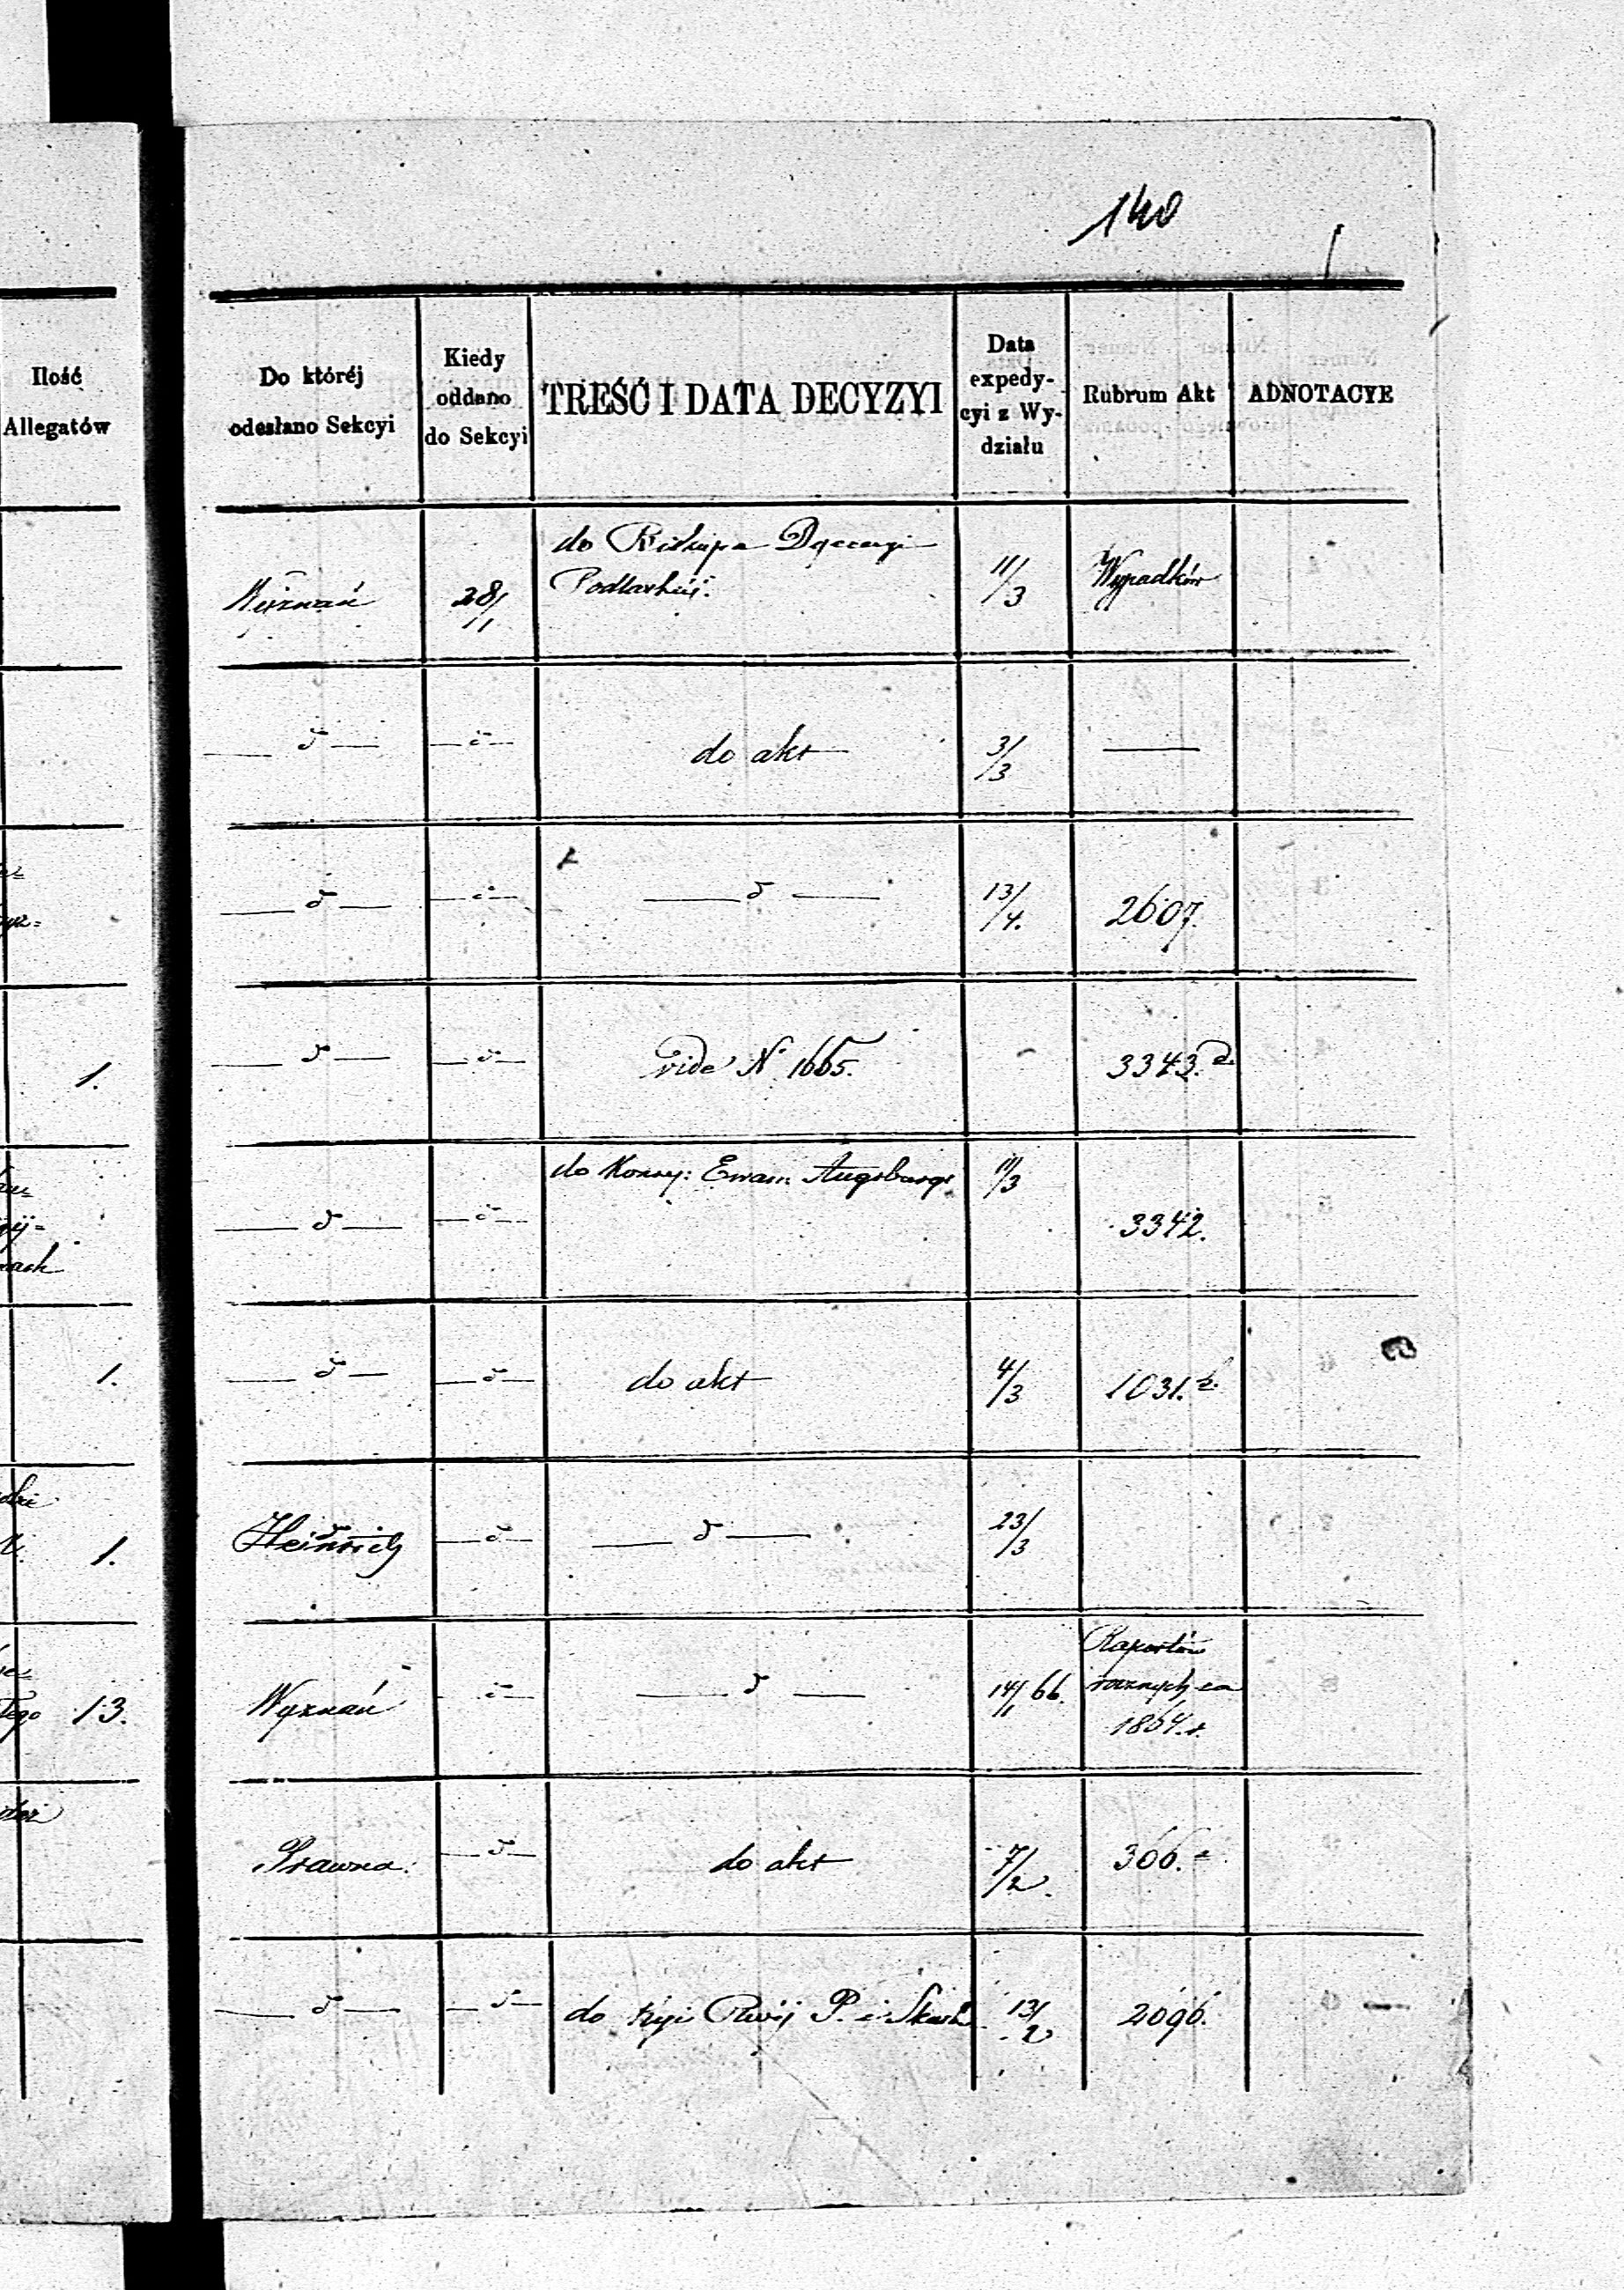 140
Ilość
Allegatów
Do któréj
odesłano Sekcyi
Kiedy
oddano
do Sekcyi
TREŚĆ I DATA DECYZYI
Data
expedy-
cyi z Wy-
działu
Rubrum Akt
ADNOTACYE
Wyznań
28/11
do Biskupa Dyecezyi
Podlaskiéj.
11/3
Wypadków
do akt
3/3
13/4.
2607.
1.
vide N. 1665.
3343.
do Konsy: Ewan. Augsburgs.
11/3
3342.
1.
do akt
4/3
1031.
1.
Heinrich
23/3
13.
Wyznań
14/1 66.
Raportów
rocznych za
1864. r.
Prawna.
do akt
7/2.
366.
do Kyi Rwéj P. i Skarb
13/2
2096.